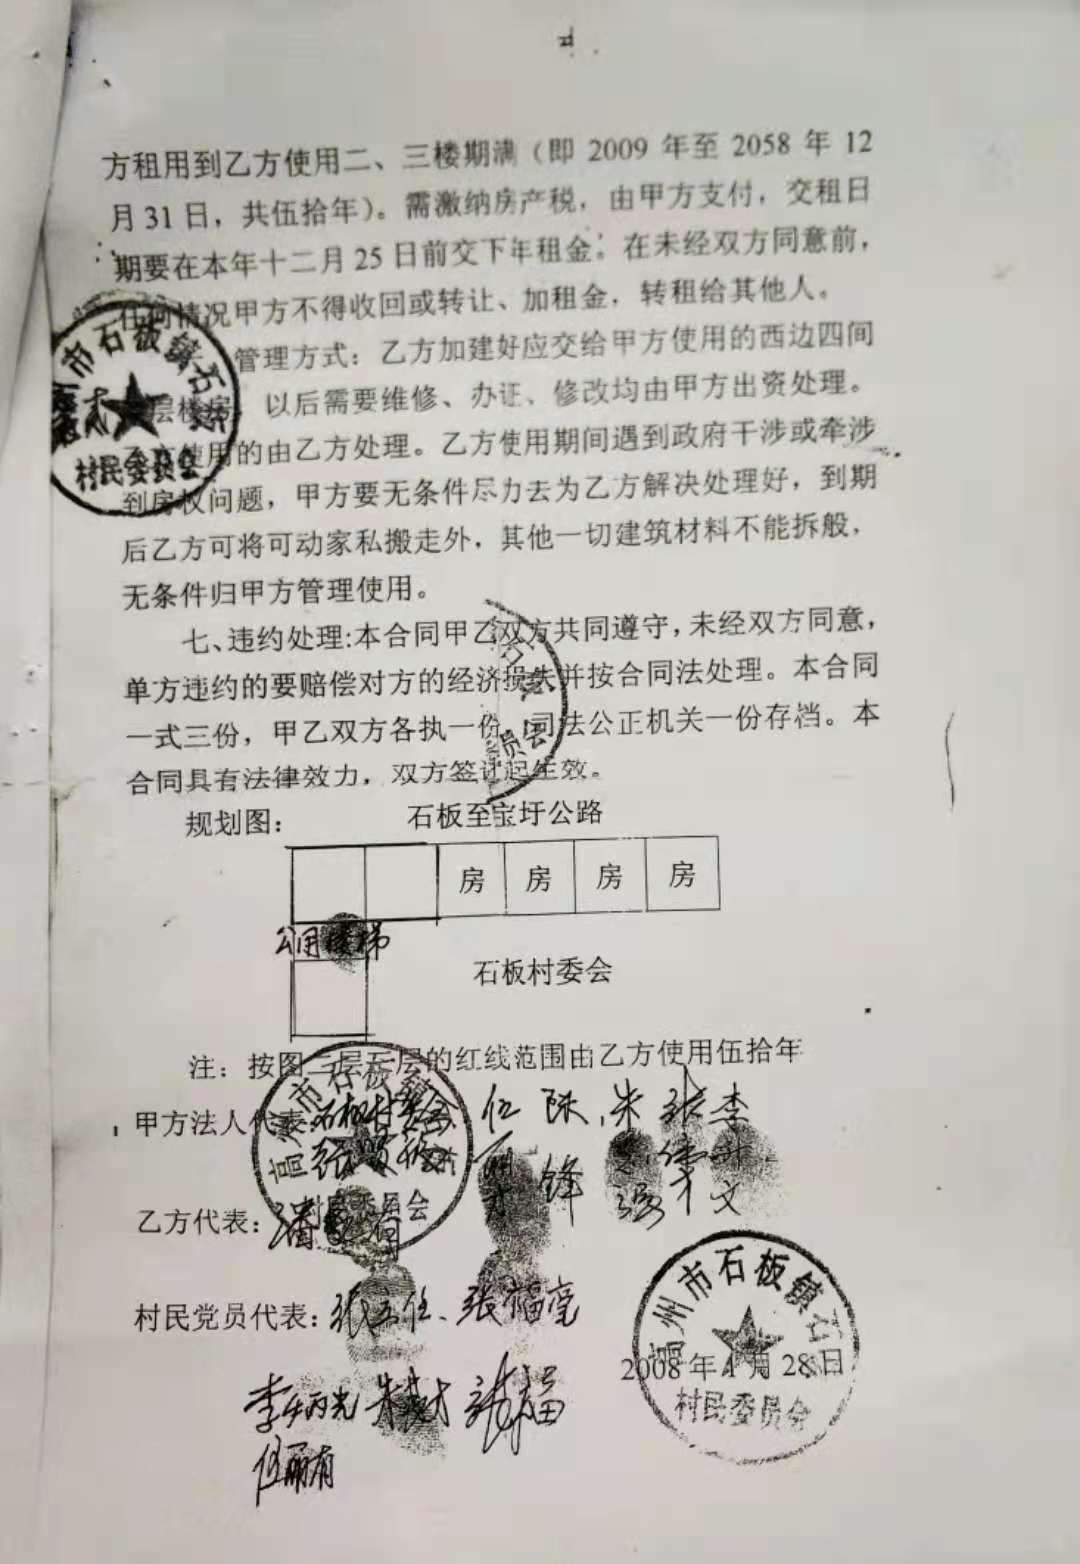 方租用到乙方使用二、三楼期满（即 2009 年至 2058 年 12
月 31 日，共伍拾年）。需激纳房产税，由甲方支付，交租日
期要在本年十二月 25 日前交下年租金。在未经双方同意前，
任何情况甲方不得收回或转让、加租金，转租给其他人。
管理方式：乙方加建好应交给甲方使用的西边四间
层楼房，以后需要维修、办证、修改均由甲方出资处理。
乙方使用的由乙方处理。乙方使用期间遇到政府干涉或牵涉
到房权问题，甲方要无条件尽力去为乙方解决处理好，到期
后乙方可将可动家私搬走外，其他一切建筑材料不能拆般，
无条件归甲方管理使用。
七、违约处理:本合同甲乙双方共同遵守，未经双方同意，
单方违约的要赔偿对方的经济损失并按合同法处理。本合同
一式三份，甲乙双方各执一份，司法公正机关一份存档。本
合同具有法律效力，双方签订起生效。
规划图： 石板至宝圩公路
房 房 房 房
公用楼梯
石板村委会
注：按图二层三层的红线范围由乙方使用伍拾年
甲方法人代表:石板村委会
乙方代表：
村民党员代表: 张福
2008 年 1 月 28 日
州市石板镇石
村民委员会
市石板镇石
村民委员会
高州市石板镇
村民委员会